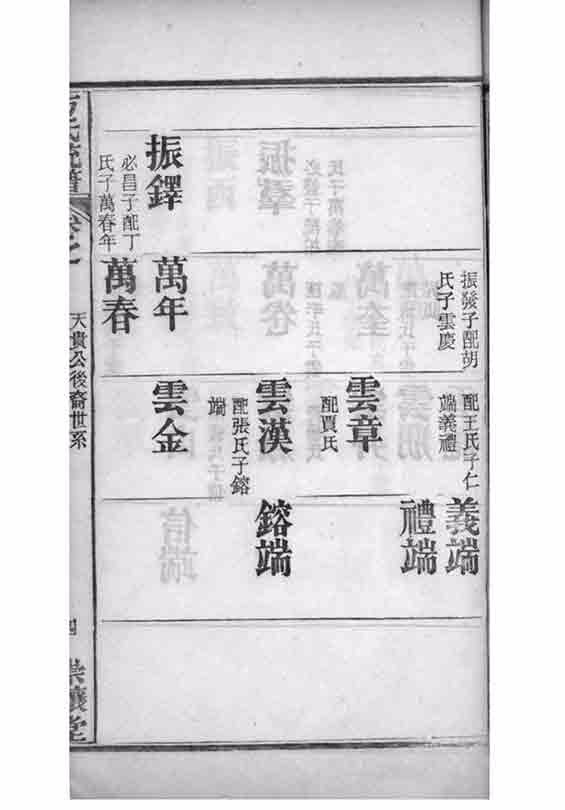 振鐸
必昌子配丁
氏子萬春年
振發子配胡
氏子雲慶
萬年
萬春
配王氏子仁
端義禮
雲章
配賈氏
雲漢
配張氏子鎔
端
雲金
義端
禮端
鎔端
氏統譜
卷之
天貴公後裔世系
四
讓堂